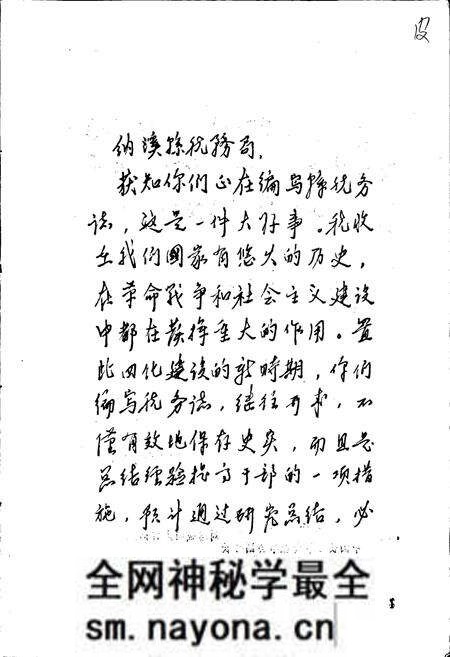 皮
纳溪縣税務局，
获知你们正在编写縣税务
志，这是一件大好事。税收
在我们國家有悠久的历史，
在革命战争和社会主义建设
中都在发挥重大的作用。置
此四化建设的新時期，你们
编写税务志，继往开来，不
僅有效地保存史实，而且是
总结经验提高干部的一项措
施，预计通过研究总结，必
全网神秘学最全
sm.nayona.cn